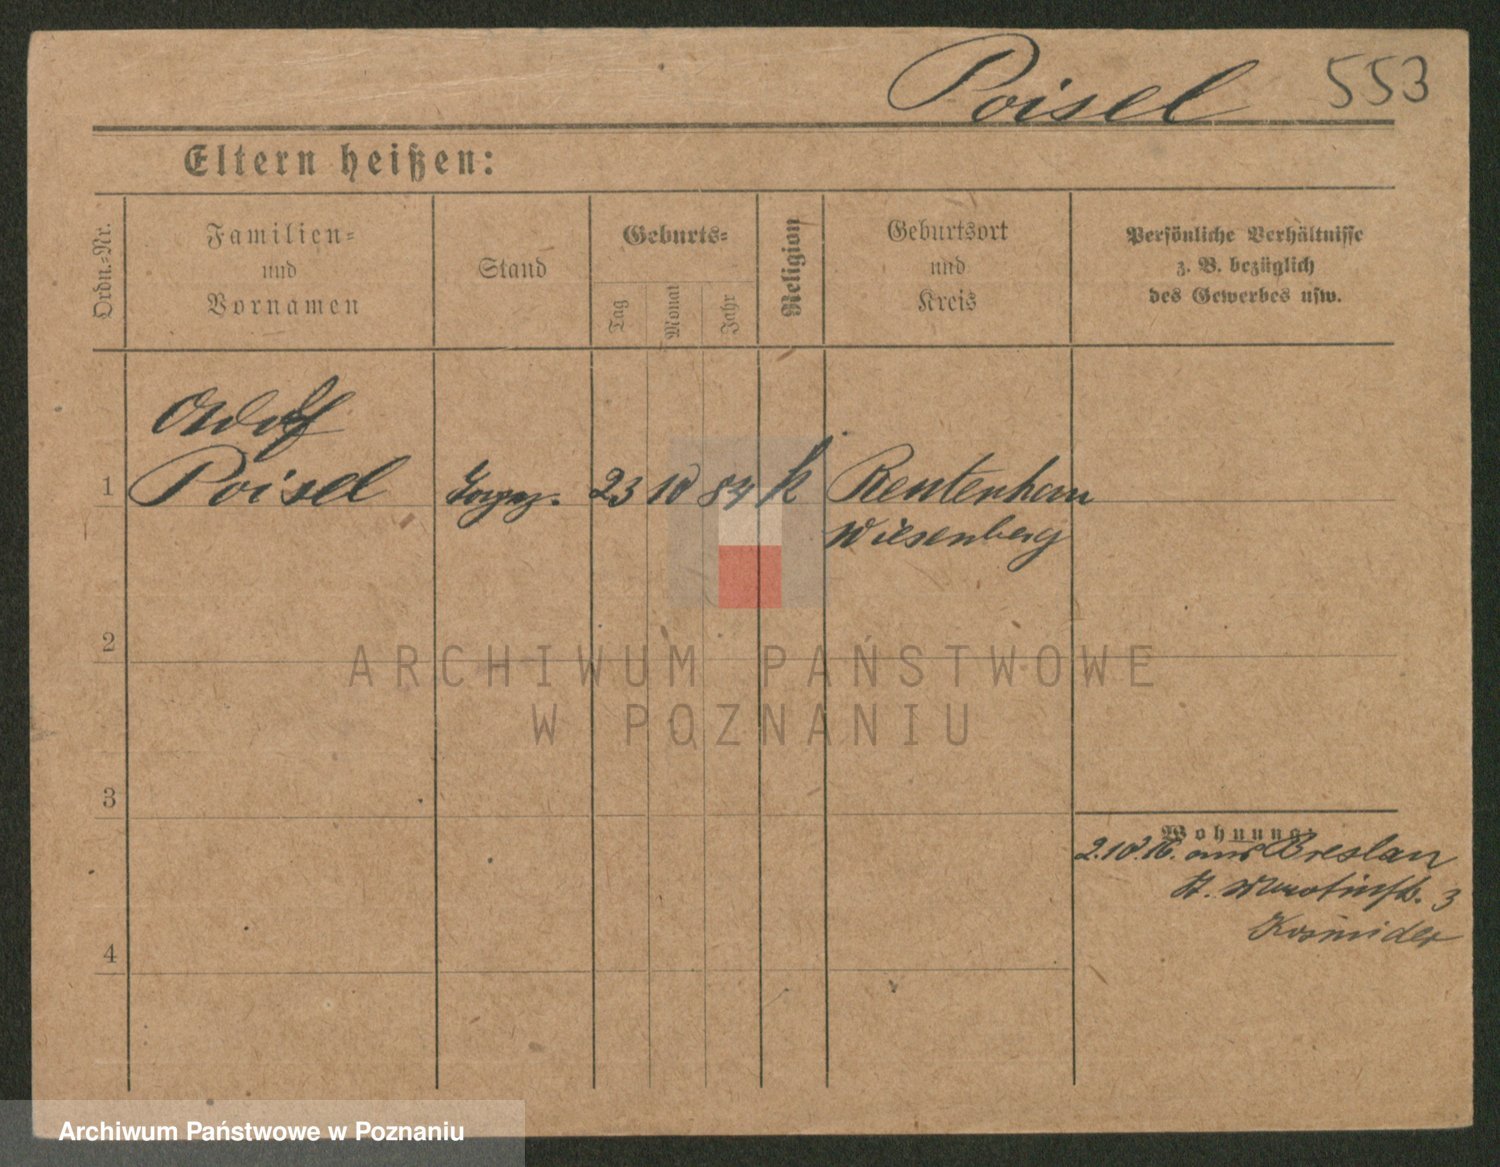 Poisel 553
Eltern heißen:
Ordn.-Nr.
Familien-
und
Vornamen
Stand
Geburts-
Tag
Monat
Jahr
Religion
Geburtsort
und
Kreis
Persönliche Verhältnisse
z. B. bezüglich
des Gewerbes usw.
Adolf
1 Poisel 23 10 84 k
Wiesenberg
2
ARCHIWUM PAŃSTWOWE
W POZNANIU
3
Wohnung:
2.10.16. aus Breslau
St. Martinstr. 3
Kosmider
4
Archiwum Państwowe w Poznaniu